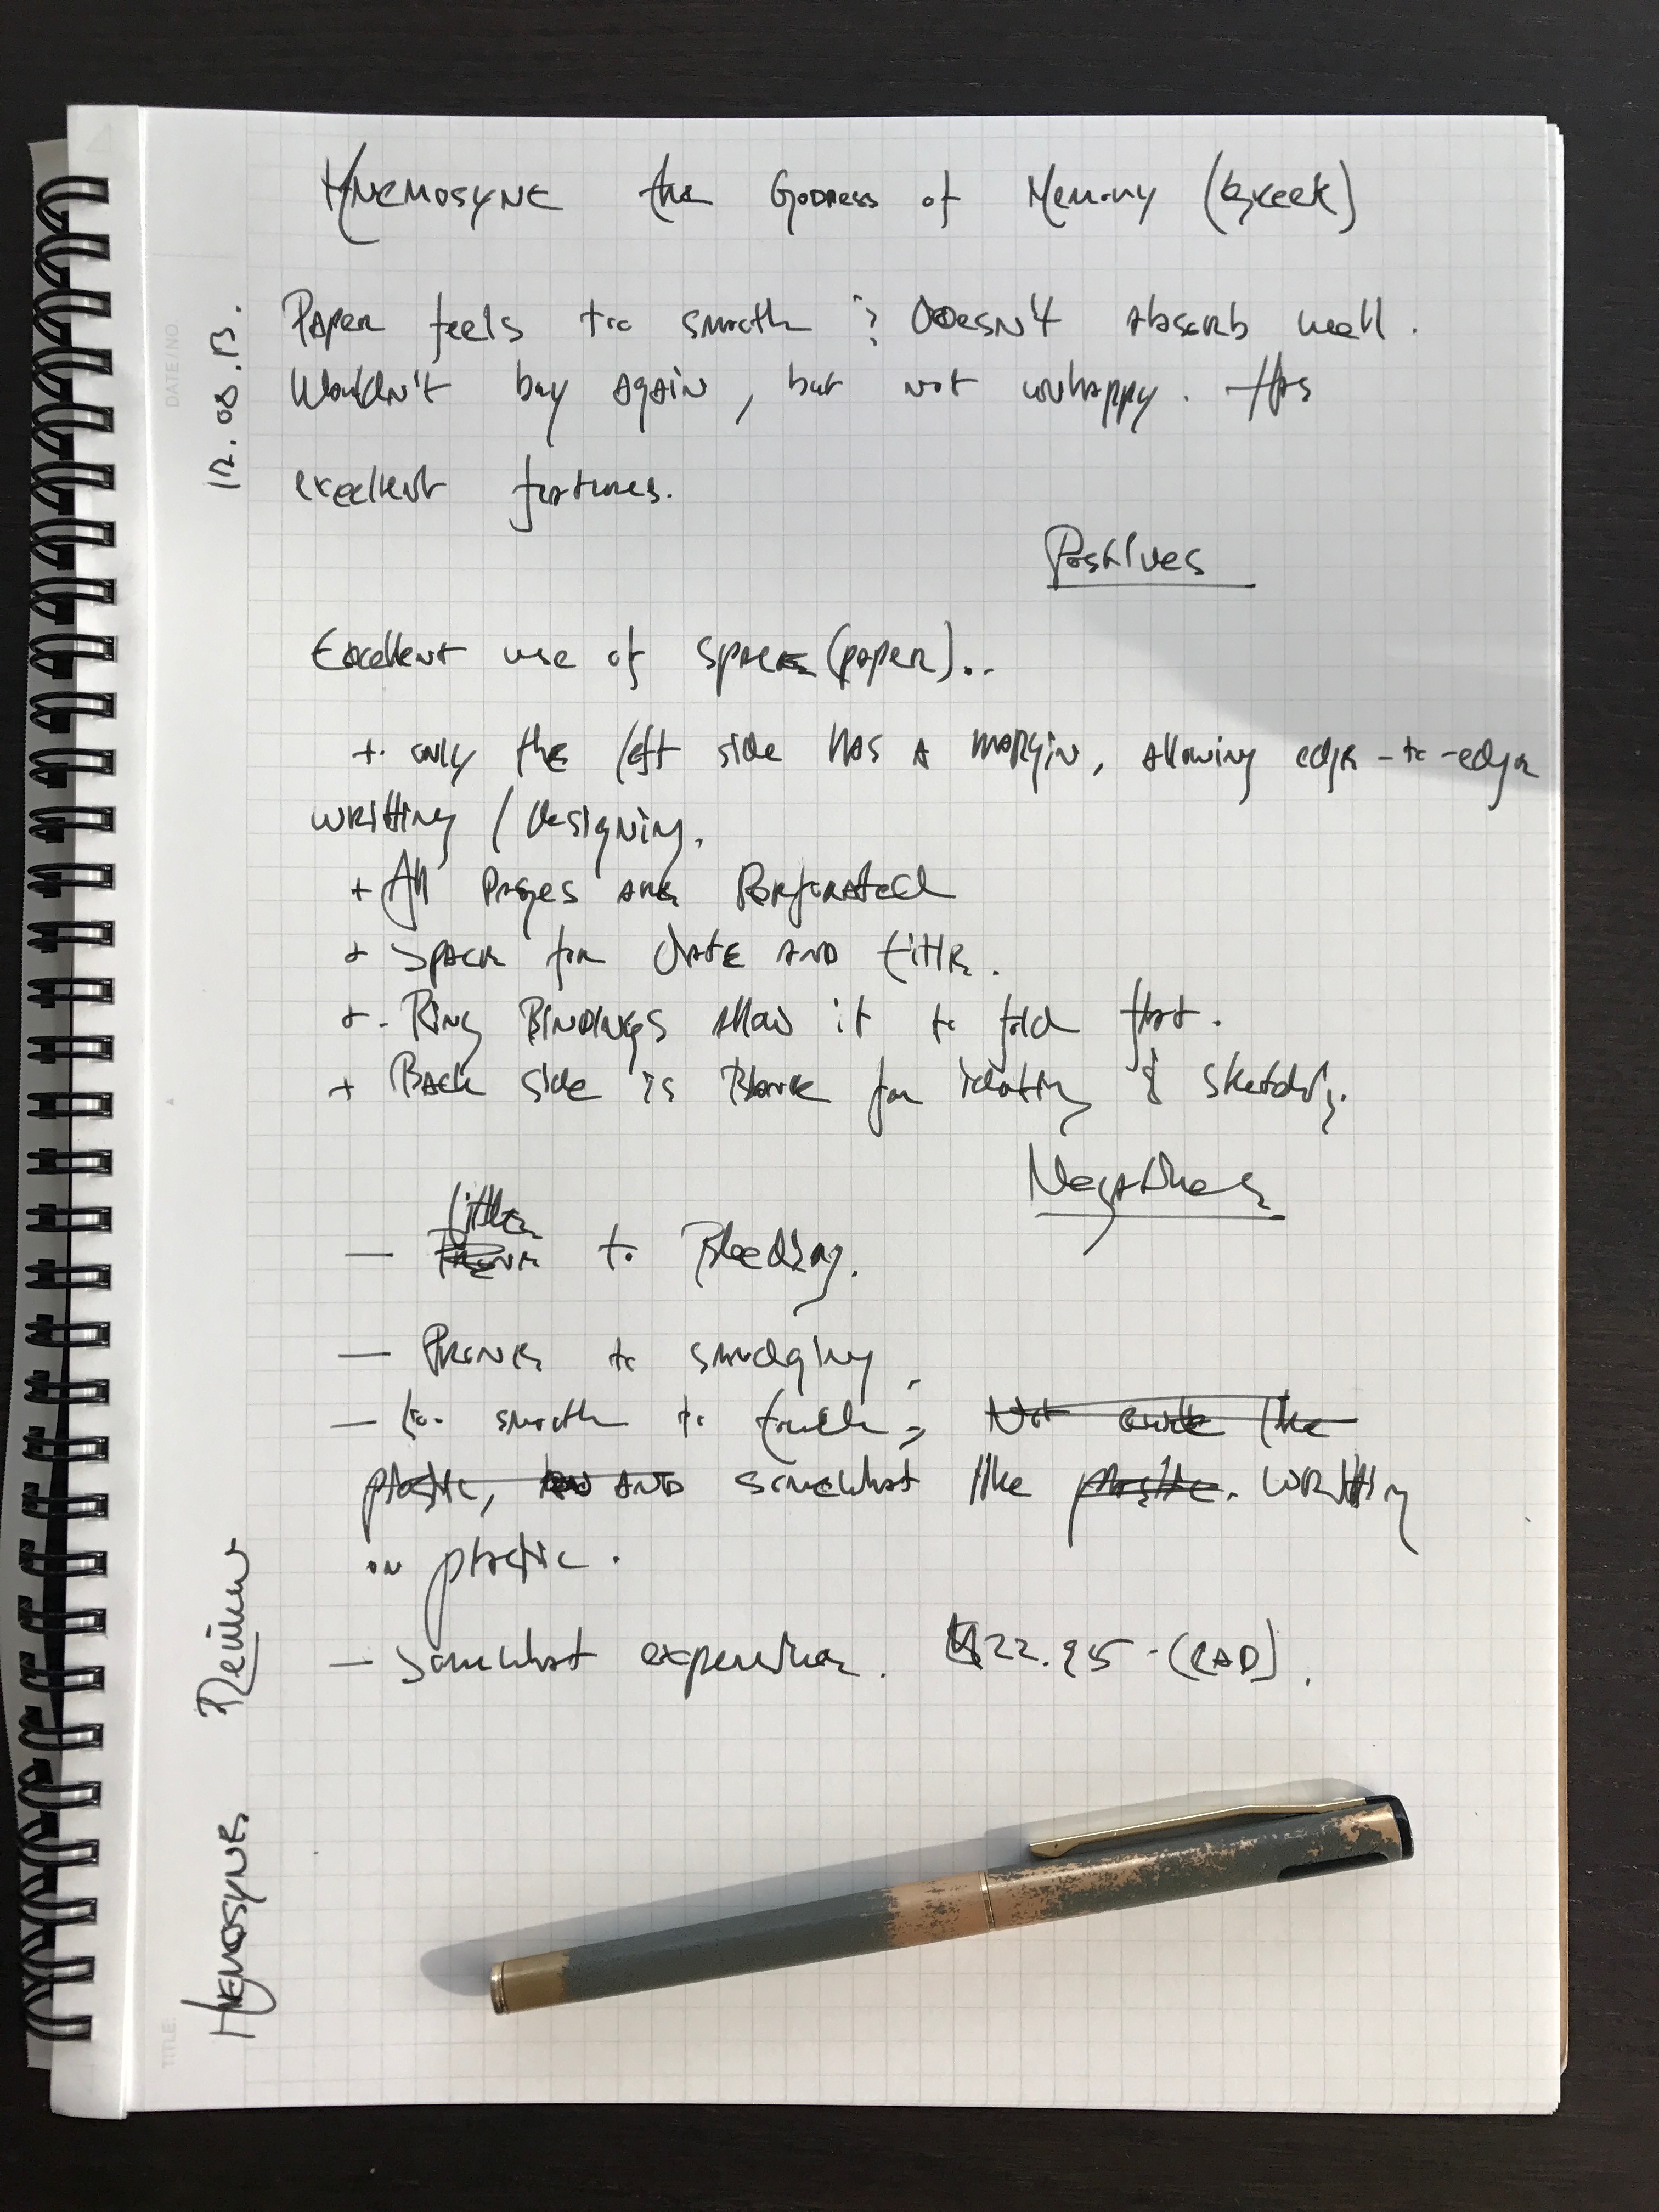 Mnemosyne the Goddess of Memory (Greek)
Paper feels too smooth & Doesn't absorb well.
Wouldn't buy again, but not unhappy. Has
excellent features.
Positives
Excellent use of space (paper)..
+ only the left side has a margin, allowing edge-to-edge
writting / designing.
+ All pages are Perforated
+ Space for date and title.
+ - Ring Bindings allow it to fold flat.
+ Back side is Blank for ideating & sketching.
Negatives
little
— Prone to Bleeding.
— Prone to smudging,
— too smooth to touch, Not quite like
plastic, and somewhat like plastic. writting
on plastic.
— Somewhat expensive. $22.95 - (CAD).
DATE/NO.
17.08.13.
TITLE:
Mnemosyne Review